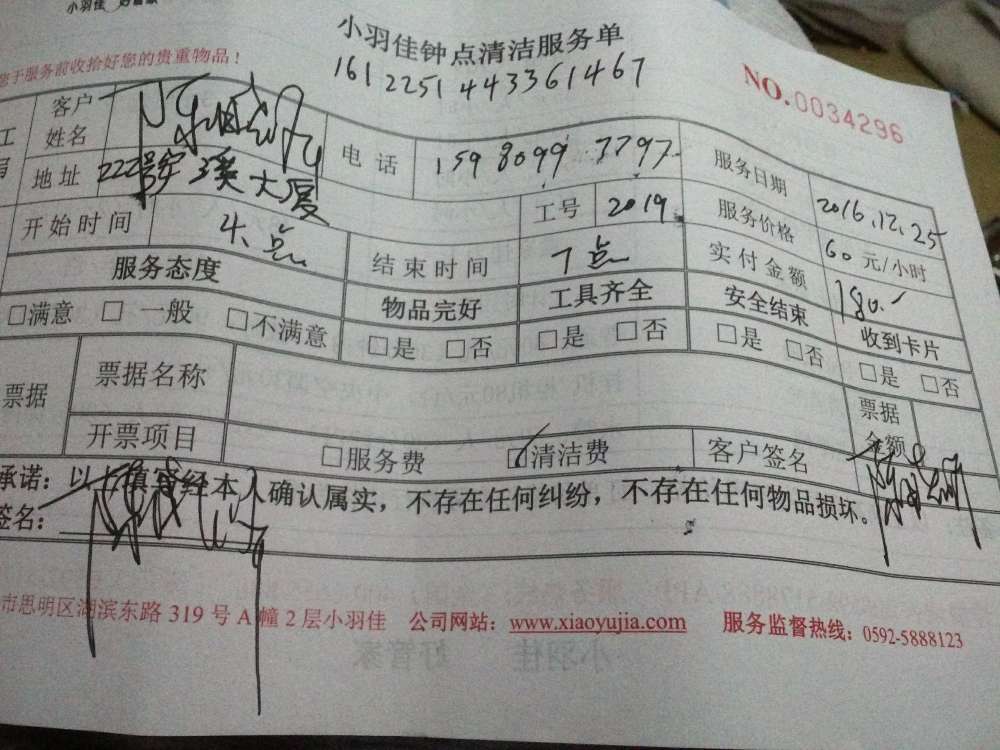 小羽佳 好管家
小羽佳钟点清洁服务单
您于服务前收拾好您的贵重物品!
1612251443361467
NO.0034296
客户姓名
电话 159 8099 7797
服务日期 2016.12.25
地址 222号宝溪大厦
工号 2019
服务价格 60元/小时
开始时间 4点
结束时间 7点
实付金额 180.
服务态度 物品完好 工具齐全 安全结束 收到卡片
□满意 □一般 □不满意 □是 □否 □是 □否 □是 □否 □是 □否
票据 票据名称 票据金额
开票项目 □服务费 □清洁费 客户签名
承诺:以上填写经本人确认属实,不存在任何纠纷,不存在任何物品损坏。
签名:
市思明区湖滨东路319号A幢2层小羽佳 公司网站:www.xiaoyujia.com 服务监督热线:0592-5888123